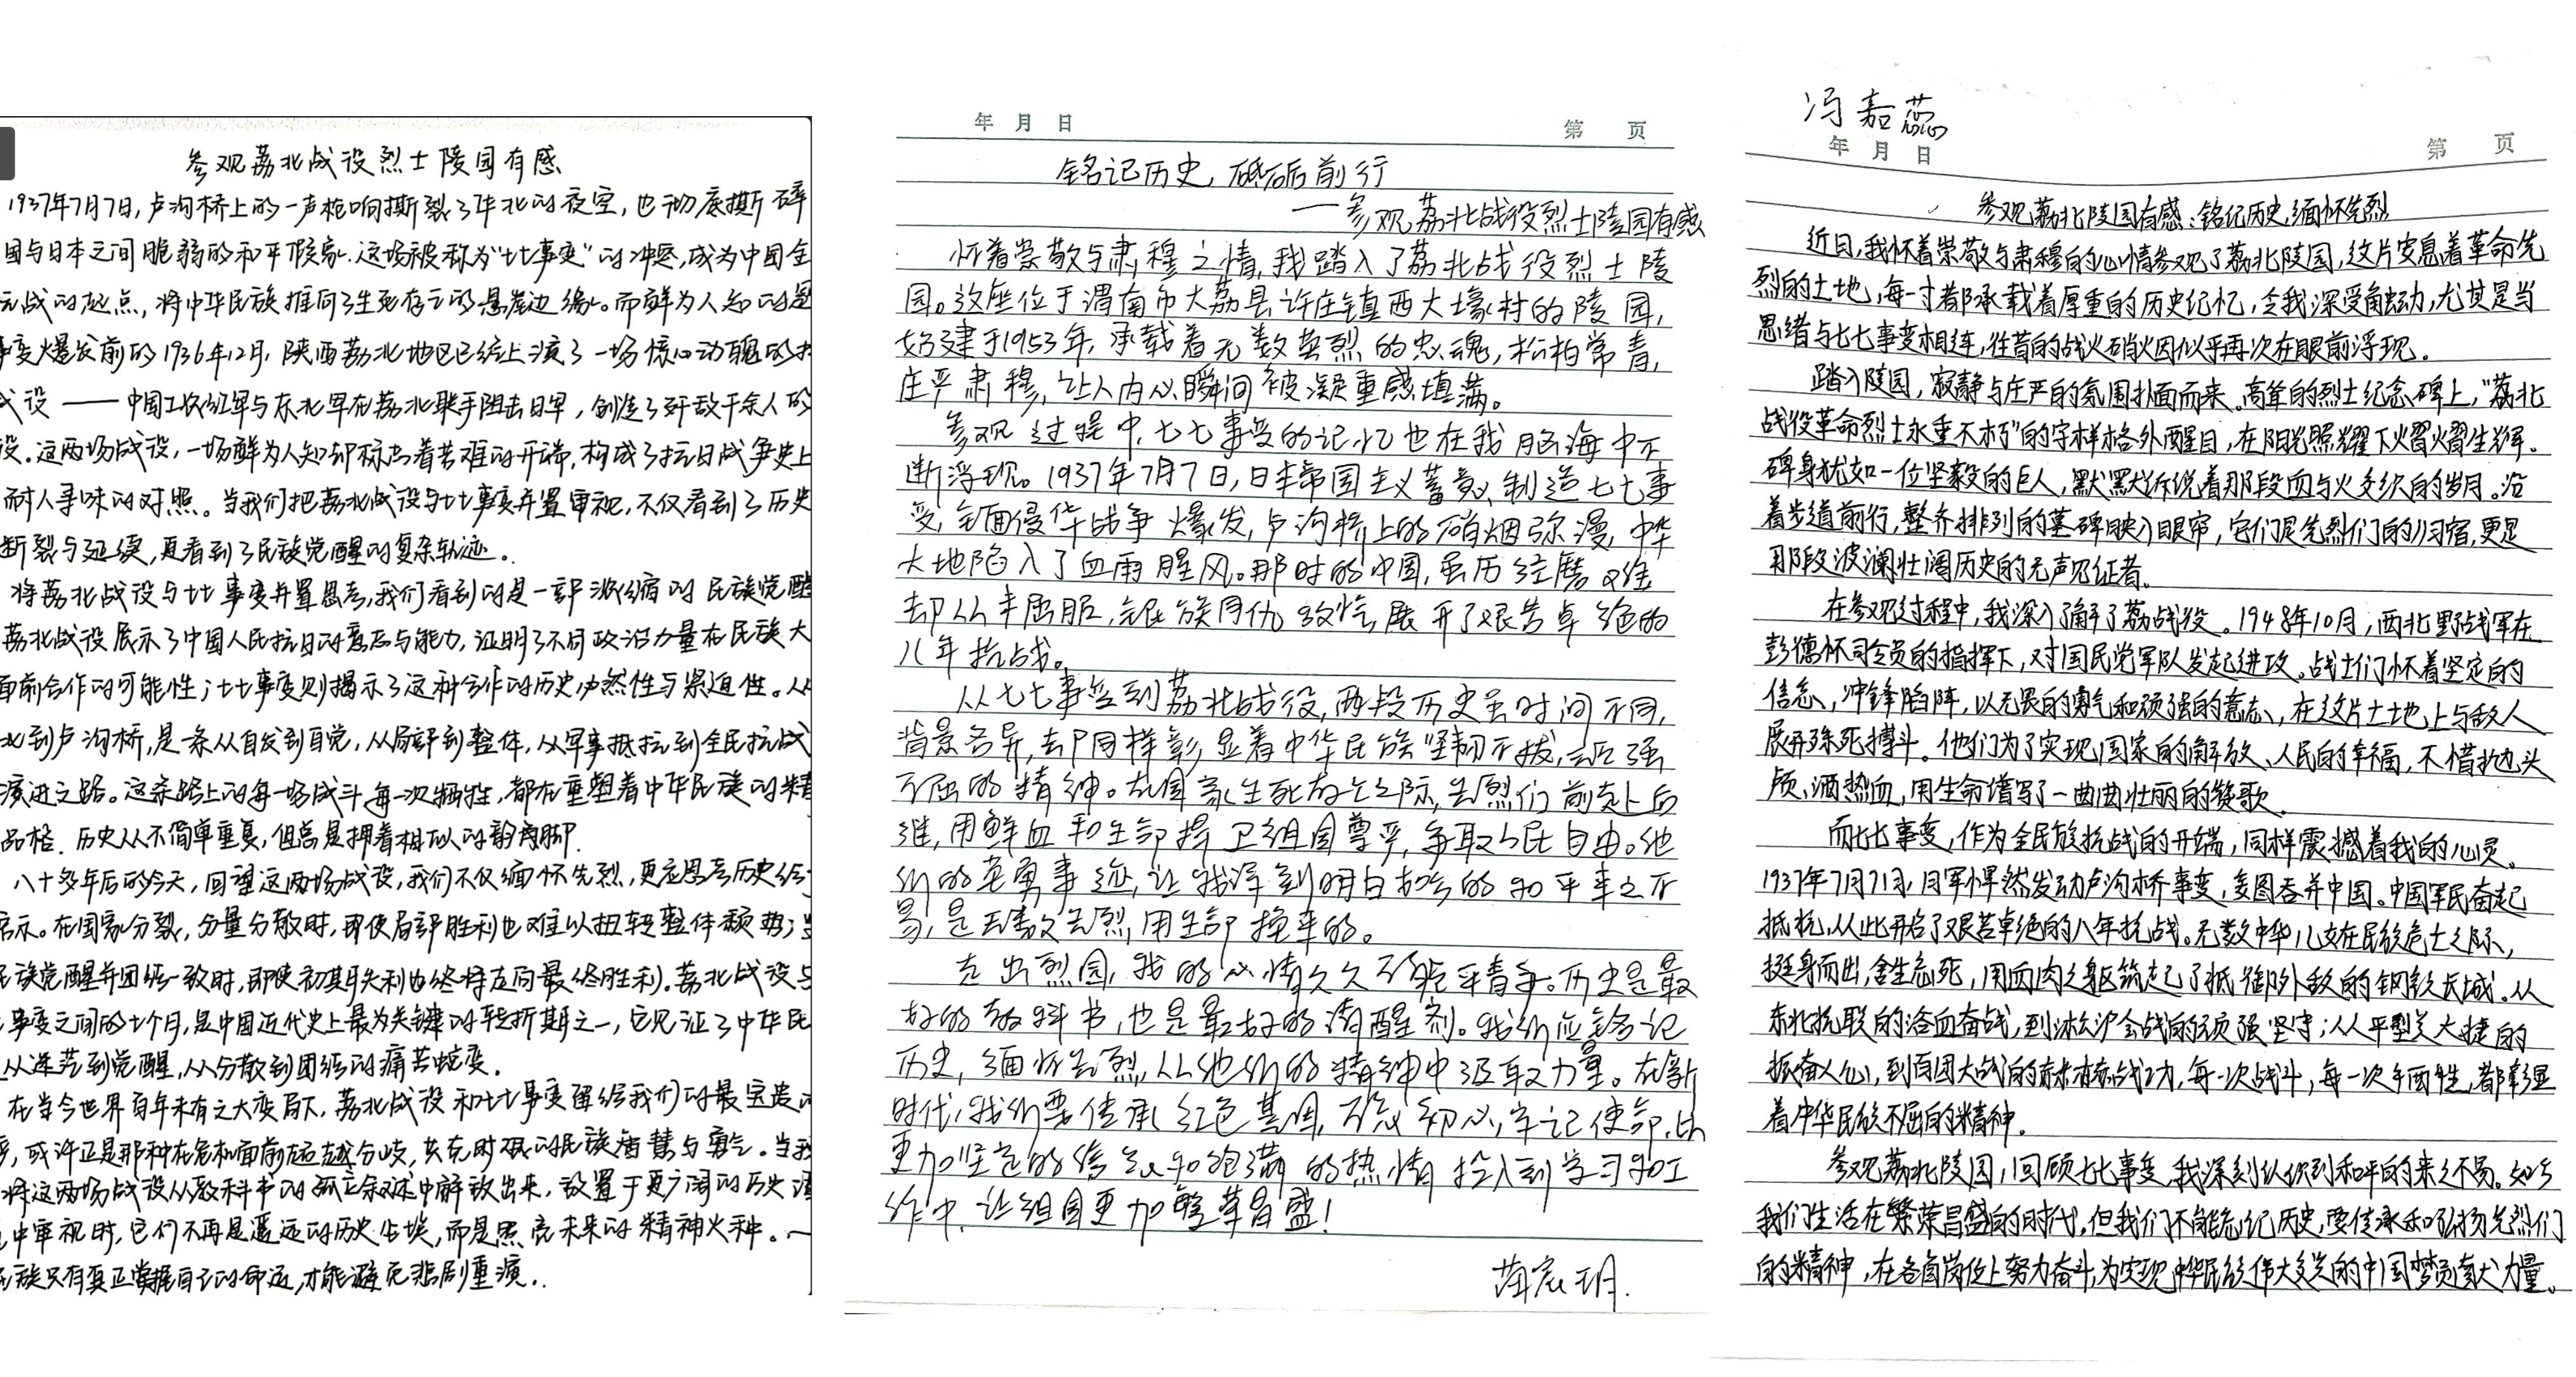 参观荔北战役烈士陵园有感
1937年7月7日，卢沟桥上的一声枪响撕裂了华北的夜空，也彻底撕碎
国与日本之间脆弱的和平假象。这场被称为“七七事变”的冲突，成为中国全
抗战的起点，将中华民族推向了生死存亡的悬崖边缘。而鲜为人知的是
事变爆发前的1936年12月，陕西荔北地区已经上演了一场惊心动魄的
战役——中国工农红军与东北军在荔北联手阻击日军，创造了歼敌千余人的
役。这两场战役，一场鲜为人知却标志着苦难的开端，构成了抗日战争史上
耐人寻味的对照。当我们把荔北战役与七七事变并置审视，不仅看到了历史
断裂与延续，更看到了民族觉醒的复杂轨迹。
将荔北战役与七七事变并置思考，我们看到的是一部浓缩的民族觉醒
荔北战役展示了中国人民抗日的意志与能力，证明了不同政治力量在民族大
面前合作的可能性；七七事变则揭示了这种合作的历史必然性与紧迫性。从
北到卢沟桥，是条从自发到自觉，从局部到整体，从军事抵抗到全民抗战
演进之路。这条路上的每一场战斗，每一次牺牲，都在重塑着中华民族的精
品格．历史从不简单重复，但总是押着相似的韵脚．
八十多年后的今天，回望这两场战役，我们不仅缅怀先烈，更应思考历史给
启示。在国家分裂，分量分散时，即使局部胜利也难以扭转整体颓势；当
民族觉醒并团结一致时，即使初期失利也终将走向最终胜利。荔北战役与
事变之间的七个月，是中国近代史上最为关键的转折期之一，它见证了中华民
从迷茫到觉醒，从分散到团结的痛苦蜕变。
在当今世界百年未有之大变局下，荔北战役和七七事变留给我们的最宝贵的
，或许正是那种在危机面前超越分歧，共克时艰的民族智慧与勇气。当我
将这两场战役从教科书的孤立条述中解放出来，放置于更广阔的历史
中审视时，它们不再是遥远的历史尘埃，而是照亮未来的精神火种。一
民族只有真正掌握自己的命运，才能避免悲剧重演．
年 月 日 第 页
铭记历史，砥砺前行
——参观荔北战役烈士陵园有感
怀着崇敬与肃穆之情，我踏入了荔北战役烈士陵
园。这座位于渭南市大荔县许庄镇西大壕村的陵园，
始建于1953年，承载着无数英烈的忠魂，松柏常青，
庄严肃穆，让人内心瞬间被凝重感填满。
参观过程中，七七事变的记忆也在我脑海中不
断浮现。1937年7月7日，日本帝国主义蓄意制造七七事
变，全面侵华战争爆发，卢沟桥上的硝烟弥漫，中华
大地陷入了血雨腥风。那时的中国，虽历经磨难
却从未屈服，全民族同仇敌忾，展开了艰苦卓绝的
八年抗战。
从七七事变到荔北战役，两段历史虽时间不同，
背景各异，却同样彰显着中华民族坚韧不拔，顽强
不屈的精神。在国家生死存亡之际，先烈们前赴后
继，用鲜血和生命捍卫祖国尊严，争取人民自由。他
们的英勇事迹，让我深刻明白如今的和平来之不
易，是无数先烈用生命换来的。
走出烈园，我的心情久久不能平静。历史是最
好的教科书，也是最好的清醒剂。我们应铭记
历史，缅怀先烈，从他们的精神中汲取力量。在新
时代，我们要传承红色基因，不忘初心，牢记使命，以
更加坚定的信念和饱满的热情投入到学习和工
作中，让祖国更加繁荣昌盛！
冯嘉蕊
年 月 日 第 页
参观荔北陵园有感：铭记历史，缅怀先烈
近日，我怀着崇敬与肃穆的心情参观了荔北陵园，这片安息着革命先
烈的土地，每一寸都承载着厚重的历史记忆，令我深受触动，尤其是当
思绪与七七事变相连，往昔的战火硝烟似乎再次在眼前浮现．
踏入陵园，寂静与庄严的氛围扑面而来．高耸的烈士纪念碑上，“荔北
战役革命烈士永垂不朽”的字样格外醒目，在阳光照耀下熠熠生辉．
碑身犹如一位坚毅的巨人，默默诉说着那段血与火交织的岁月。沿
着步道前行，整齐排列的墓碑映入眼帘，它们是先烈们的归宿，更是
那段波澜壮阔历史的无声见证者。
在参观过程中，我深入了解了荔战役。1948年10月，西北野战军在
彭德怀司令员的指挥下，对国民党军队发起进攻。战士们怀着坚定的
信念，冲锋陷阵，以无畏的勇气和顽强的意志，在这片土地上与敌人
展开殊死搏斗．他们为了实现国家的解放、人民的幸福，不惜抛头
颅、洒热血，用生命谱写了一曲曲壮丽的赞歌．
而七七事变，作为全民族抗战的开端，同样震撼着我的心灵。
1937年7月7日，日军悍然发动卢沟桥事变，妄图吞并中国。中国军民奋起
抵抗，从此开启了艰苦卓绝的八年抗战。无数中华儿女在民族危亡之际，
挺身而出，舍生忘死，用血肉之躯筑起了抵御外敌的钢铁长城．从
东北抗联的浴血奋战，到淞沪会战的顽强坚守；从平型关大捷的
振奋人心，到百团大战的赫赫战功，每一次战斗，每一次牺牲，都彰显
着中华民族不屈的精神．
参观荔北陵园，回顾七七事变，我深刻认识到和平的来之不易。如今
我们生活在繁荣昌盛的时代，但我们不能忘记历史，要传承和弘扬先烈们
的精神，在各自岗位上努力奋斗，为实现中华民族伟大复兴的中国梦贡献力量。